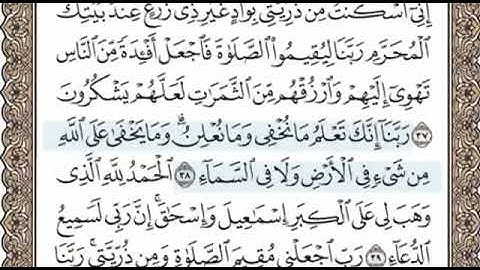 إِنِّىٓ أَسْكَنتُ مِن ذُرِّيَّتِى بِوَادٍ غَيْرِ ذِى زَرْعٍ عِندَ بَيْتِكَ
ٱلْمُحَرَّمِ رَبَّنَا لِيُقِيمُوا۟ ٱلصَّلَوٰةَ فَٱجْعَلْ أَفْـِٔدَةً مِّنَ ٱلنَّاسِ
تَهْوِىٓ إِلَيْهِمْ وَٱرْزُقْهُم مِّنَ ٱلثَّمَرَٰتِ لَعَلَّهُمْ يَشْكُرُونَ
٣٧ رَبَّنَآ إِنَّكَ تَعْلَمُ مَا نُخْفِى وَمَا نُعْلِنُ ۗ وَمَا يَخْفَىٰ عَلَى ٱللَّهِ
مِن شَىْءٍ فِى ٱلْأَرْضِ وَلَا فِى ٱلسَّمَآءِ ٣٨ ٱلْحَمْدُ لِلَّهِ ٱلَّذِى
وَهَبَ لِى عَلَى ٱلْكِبَرِ إِسْمَٰعِيلَ وَإِسْحَٰقَ ۚ إِنَّ رَبِّى لَسَمِيعُ
ٱلدُّعَآءِ ٣٩ رَبِّ ٱجْعَلْنِى مُقِيمَ ٱلصَّلَوٰةِ وَمِن ذُرِّيَّتِى ۚ رَبَّنَا